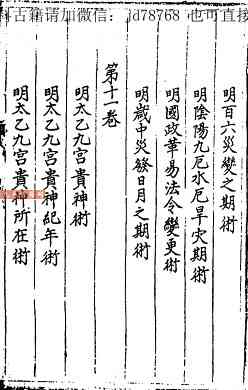 科古籍请加微信：jd78768 也可直接
明百六災變之期術
明陰陽九厄水厄旱灾期術
明國政革易法令變更術
明歲中災發日月之期術
第十一卷
明太乙九宮貴神術
明太乙九宮貴神紀年術
明太乙九宮貴神所在術